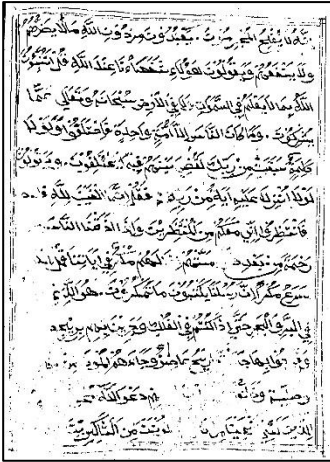 انه لا يفلح المجرمون ويعبدون من دون الله ما لا يضرهم
ولا ينفعهم ويقولون هؤلاء شفعاؤنا عند الله قل اتنبئون
الله بما لا يعلم في السموات ولا في الارض سبحانه وتعالى عما
يشركون وما كان الناس الا امة واحدة فاختلفوا ولولا
كلمة سبقت من ربك لقضى بينهم فيما فيه يختلفون ويقولون
لولا انزل عليه اية من ربه فقل انما الغيب لله
فانتظروا اني معكم من المنتظرين واذا اذقنا الناس
رحمة من بعد مستهم لهم مكر في اياتنا قل الله
اسرع مكرا ان رسلنا يكتبون ما تمكرون هو الذي
في البر والبحر حتى اذا كنتم في الفلك وجرين بهم بريح
بها ريح عاصف وجاءهم الموج
دعوا الله
من الشاكرين